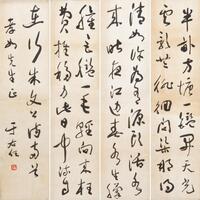 半畝方塘一鑑開天光
雲影共徘徊問渠那得
清如許為有源頭活水
來昨夜江邊春水生艨
艟巨艦一毛輕向來枉
費推移力此日中流自
在行朱文公詩兩首
先生正
于右任